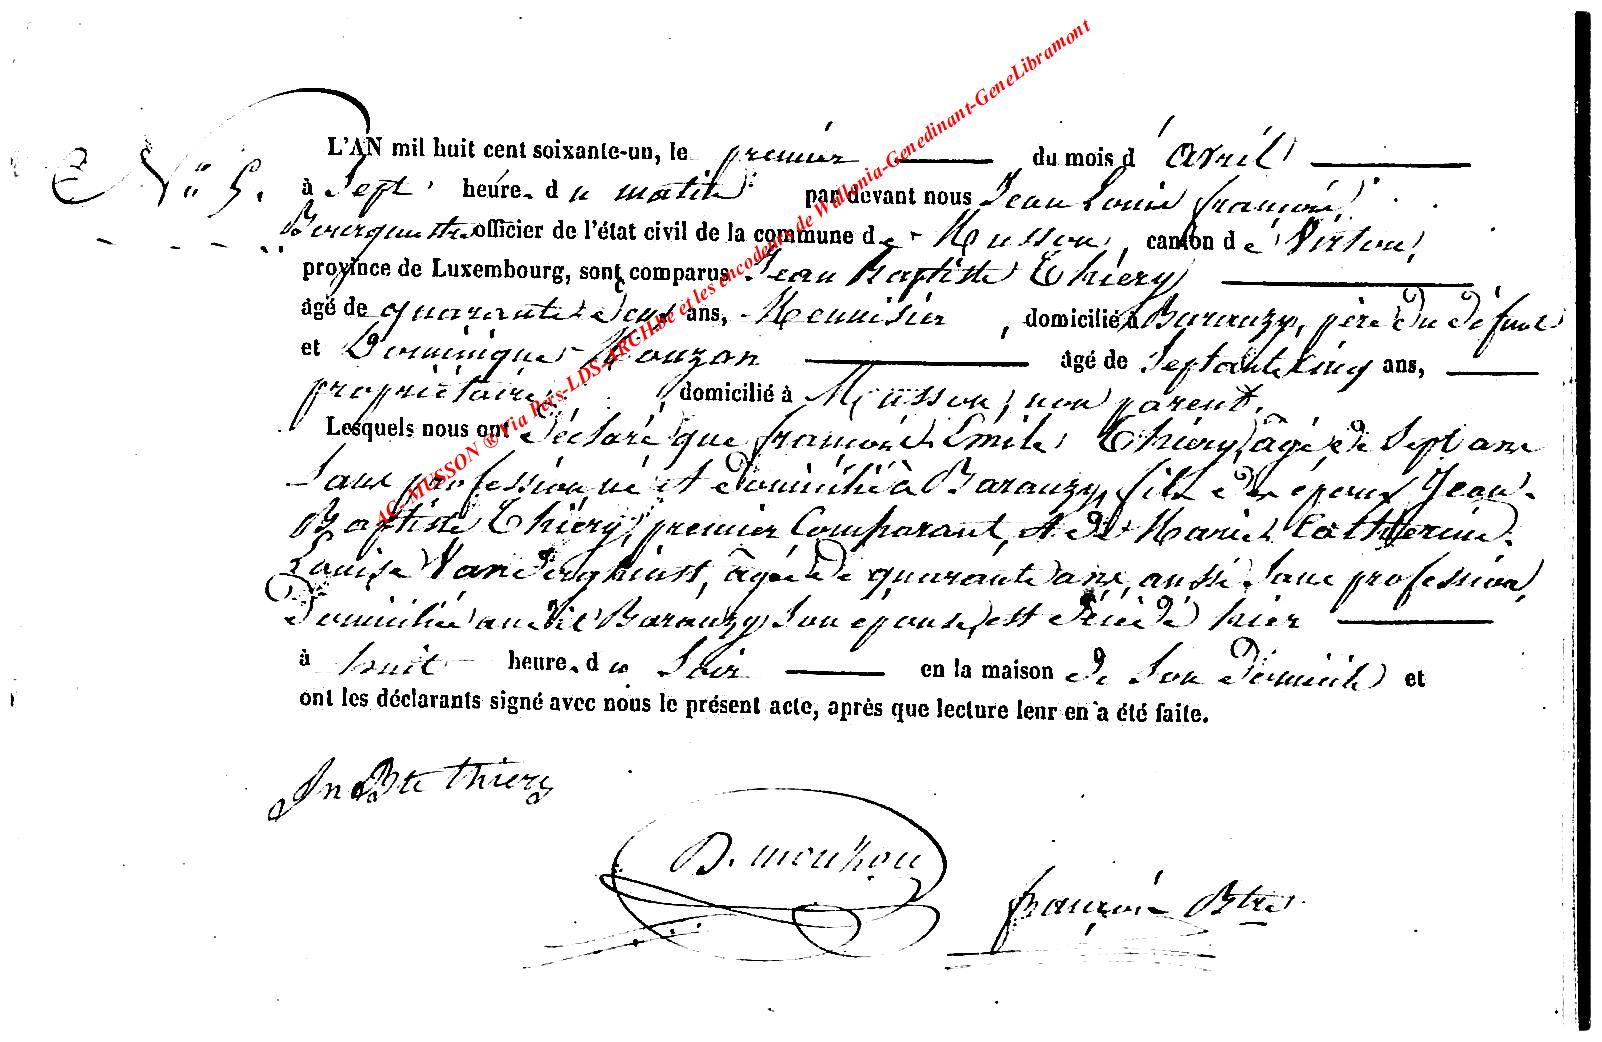 N° 5.
L'AN mil huit cent soixante-un, le premier du mois d'avril
à Sept heures du matin par devant nous Jean Louis François
officier de l'état civil de la commune de Musson, canton de Virton,
province de Luxembourg, sont comparus Jean Baptiste Thiéry
âgé de quarante deux ans, Menuisier, domicilié à Baranzy, père du défunt
et Dominique Mouzon âgé de Septante cinq ans,
propriétaire, domicilié à Musson, non parent.
Lesquels nous ont déclaré que François Emile Thiéry, âgé de Sept ans
Sans profession né et domicilié à Baranzy, fils des époux Jean
Baptiste Thiéry, premier Comparant, et de Marie Catherine
Louise Vanderghinst, âgée de quarante ans, aussi Sans profession,
domiciliée audit Baranzy Son épouse, est décédé hier
à huit heures du Soir en la maison de Son domicile et
ont les déclarants signé avec nous le présent acte, après que lecture leur en a été faite.
Jn Bte thiery
D. mouzon
françois Btre
AC-MUSSON ® Via Pers-LDS-ARCH.be et les encodeurs de Wallonia-Genedinant-GeneLibramont